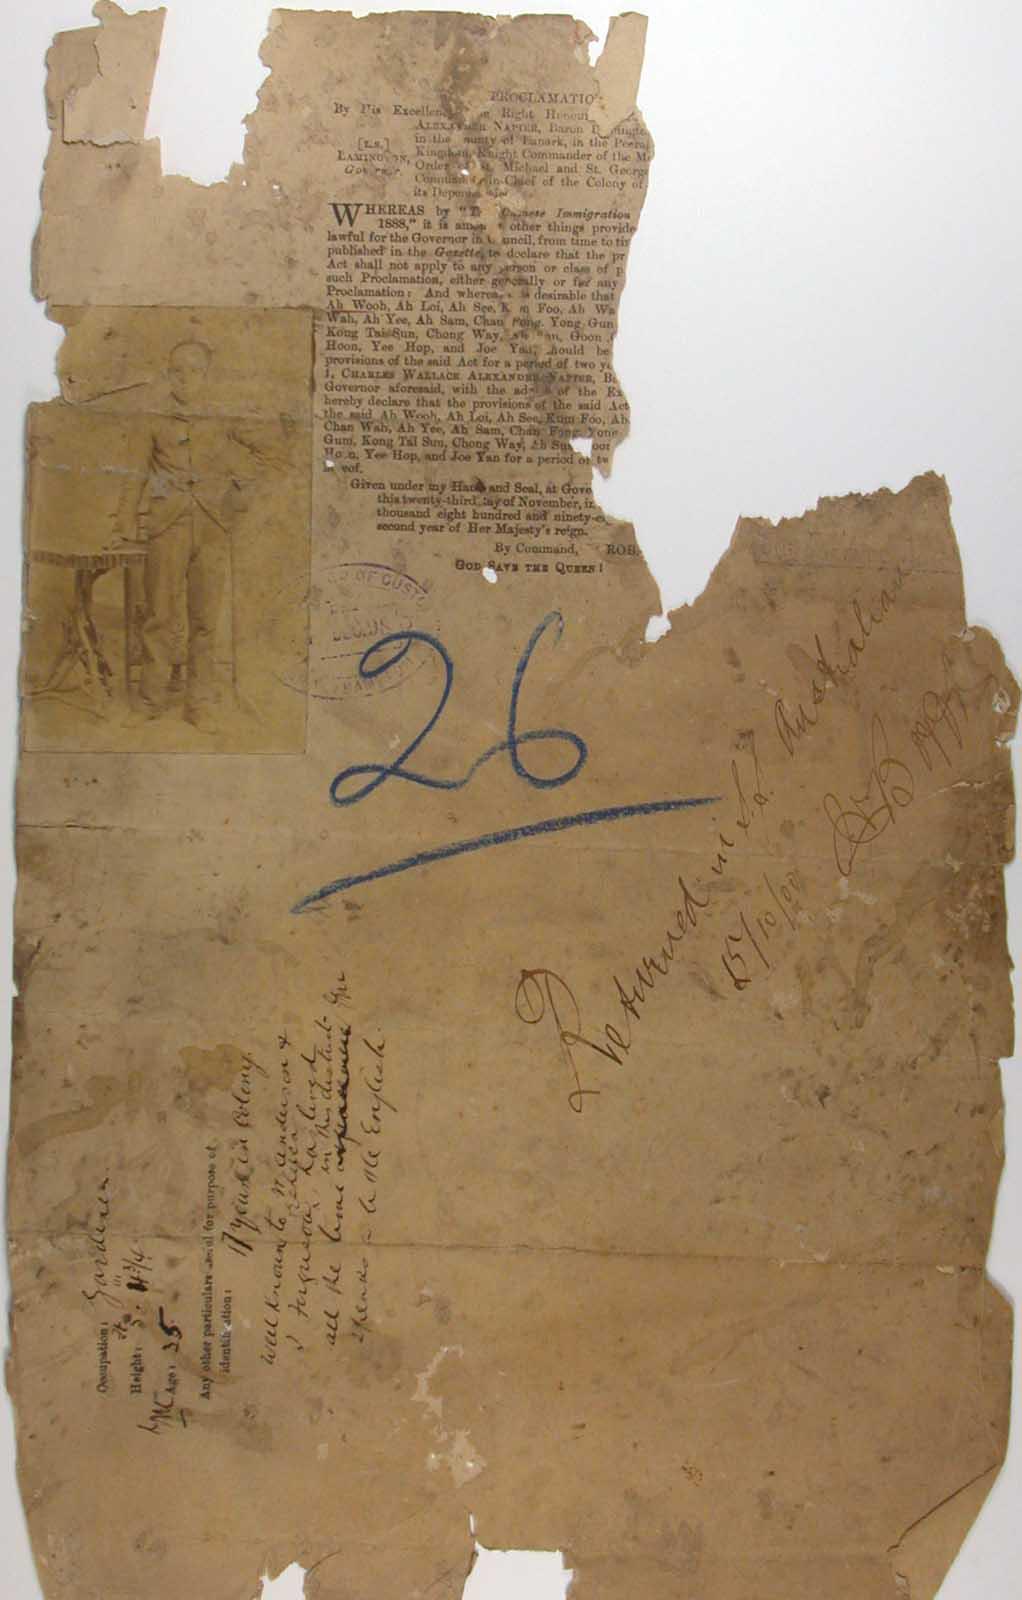 PROCLAMATIO
By His Excellen Right Honou
ALEXANDER NAPIER, Baron
in the of Lanark, in the Peera
[L.S.] Kingdom, Knight Commander of the M
LAMINGTON, Order of St. Michael and St. Georg
Governor. Command in-Chief of the Colony of
its Depen
WHEREAS by "The Chinese Immigration
1888," it is among other things provide
lawful for the Governor in Council, from time to tim
published in the Gazette, to declare that the pr
Act shall not apply to any person or class of p
such Proclamation, either generally or for any
Proclamation: And whereas it is desirable that
Ah Wooh, Ah Loi, Ah See, Kum Foo, Ah Wa
Wah, Ah Yee, Ah Sam, Chan Fong, Yong Gun
Kong Tai Sun, Chong Way, Ah Sun, Goon
Hoon, Yee Hop, and Joe Yan, should be
provisions of the said Act for a period of two ye
I, CHARLES WALLACE ALEXANDER NAPIER, B
Governor aforesaid, with the advice of the Ex
hereby declare that the provisions of the said Act
the said Ah Wooh, Ah Loi, Ah See, Kum Foo, Ah
Chan Wah, Ah Yee, Ah Sam, Chan Fong, Yong
Gum, Kong Tai Sun, Chong Way, Ah Sun, oon
Hoon, Yee Hop, and Joe Yan for a period of tw
eof.
Given under my Hand and Seal, at Gove
this twenty-third day of November, in
thousand eight hundred and ninety-e
second year of Her Majesty's reign.
By Command, ROB
GOD SAVE THE QUEEN!
OF CUST
26
Returned in S.S. Australian
15/10/00
Occupation: Gardener
ft. in.
Height: 5: 4 3/4
Age: 35
Any other particulars useful for purpose of
identification: 17 years in Colony.
well known to
& Ferguson has lived
all the time in this district
speaks a little English.